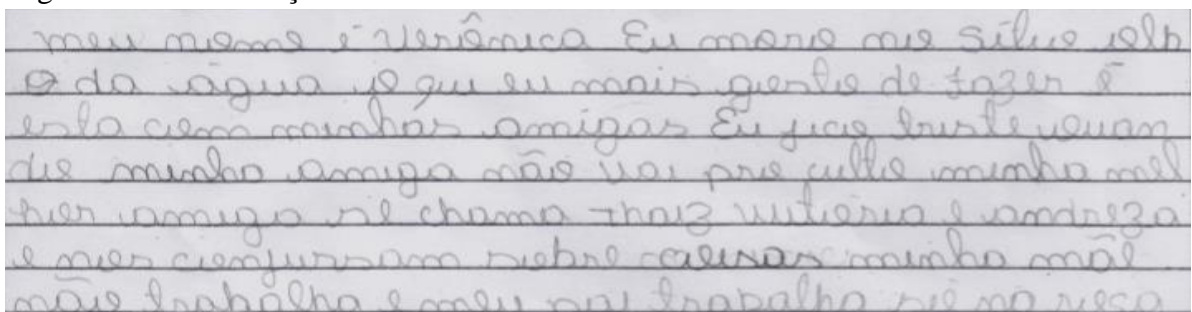 meu nome é Verônica Eu moro no Sítio olh
o da água o que eu mais gosto de fazer é
esta com minhas amigas Eu fico triste
do minha amiga não vai pro culto minha mel
hor amiga se chama Thaiz vitoria e andreza
e nos sobre coisas minha mãe
não trabalha e meu pai trabalha só na roça